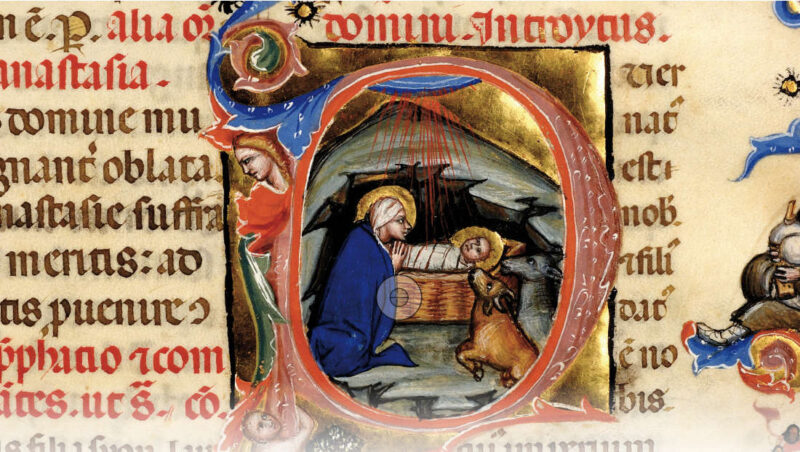 n ē. p. alia or̄
anastasia.
s domine mu
gnant̄ oblata
nastasie suffra
meritis: ad
tis puenire ↄ
p̄phatio ⁊ com
ites. ut s̄. cō.
domini. Introytus.
uer
nat̄
est
mob.
⁊ fili
dat̄
ē no
bis.